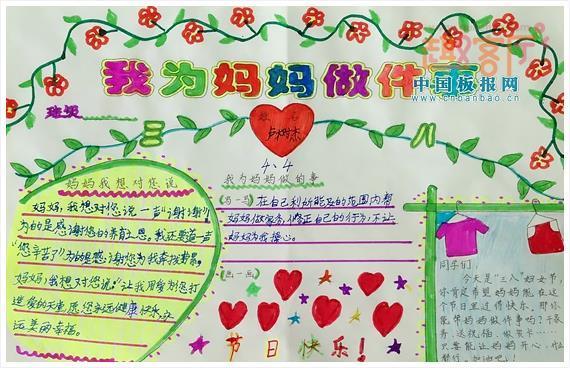 我为妈妈做件事
中国板报网
www.cnbanbao.cn
班级
姓名
三 八
4、4
妈妈我想对您说
妈妈，我想对您说一声“谢谢”
为的是感谢您的养育之恩。我还要道一声
“您辛苦了”为的是感谢您为我
妈妈，我想对您说：“让我用爱为您打
造爱的天堂，愿您永远健康快乐，永
远美丽幸福。
我为妈妈做的事
(写一写) 在自己力所能及的范围内帮
妈妈做家务，修正自己的行为，不让
妈妈为我操心。
(画一画)
节日快乐！
同学们
今天是“三八”妇女节，
你肯定希望妈妈能在这
个节日里过得快乐，那你
能帮妈妈做件事吗？干家
务、送祝福、做贺卡……
只要能让妈妈开心，